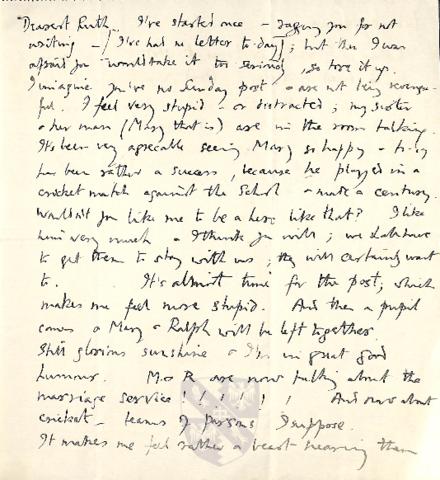 Dearest Ruth, I've started once - ragging you for not
writing - [I've had no letter to-day]; but then I was
afraid you would take it too seriously, so tore it up.
I imagine you've no Sunday post - & are not being revenge-
ful. I feel very stupid - or distracted; my sister
& her man (Mary that is) are in the room talking.
It's been very agreeable seeing Mary so happy -
has been rather a success, because he played in a
cricket match against the School & made a century.
Wouldn't you like me to be a hero like that? I like
him very much & I think you will; we shall have
to get them to stay with us; they will certainly want
to. It's almost time for the post; which
makes me feel more stupid. And then a pupil
comes & Mary & Ralph will be left together.
Still glorious sunshine & I'm in great good
humour. M & R are now talking about the
marriage service ! ! ! ! ! ! And now about
cricket - teams of parsons I suppose.
It makes me feel rather a beast hearing them